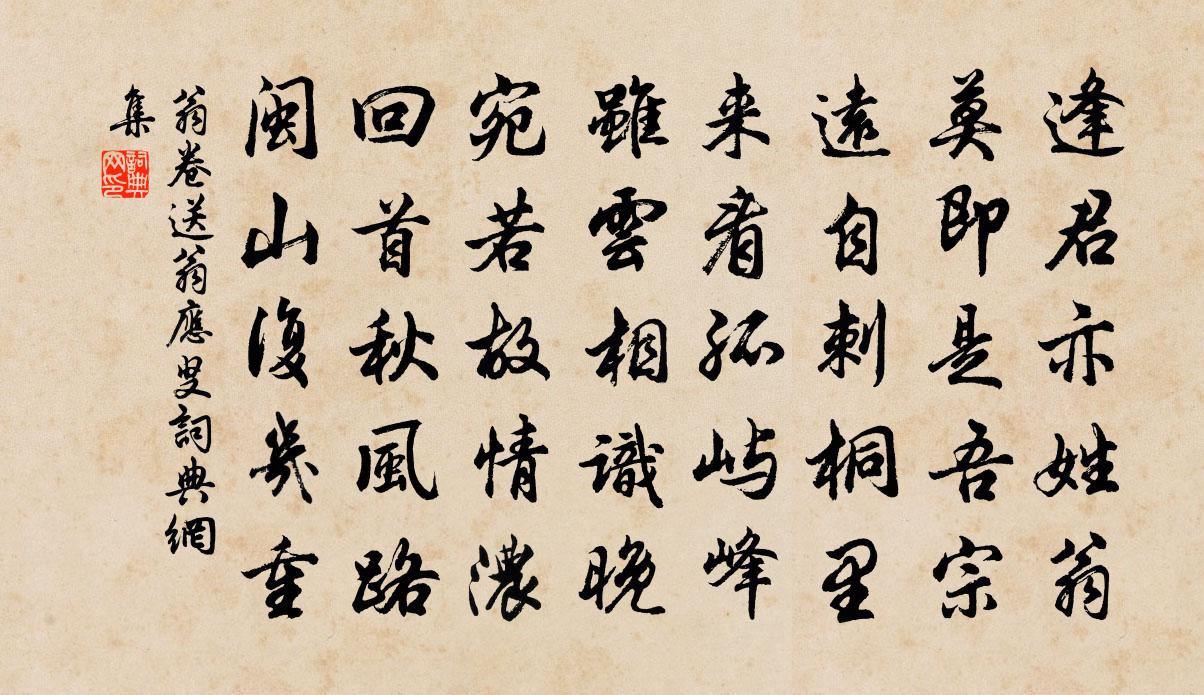 逢君亦姓翁
莫即是吾宗
遠自刺桐里
来看孤屿峰
雖雲相識晚
宛若故情濃
回首秋風路
閩山復幾重
翁卷送翁應叟詞典網
集
詞典
网印